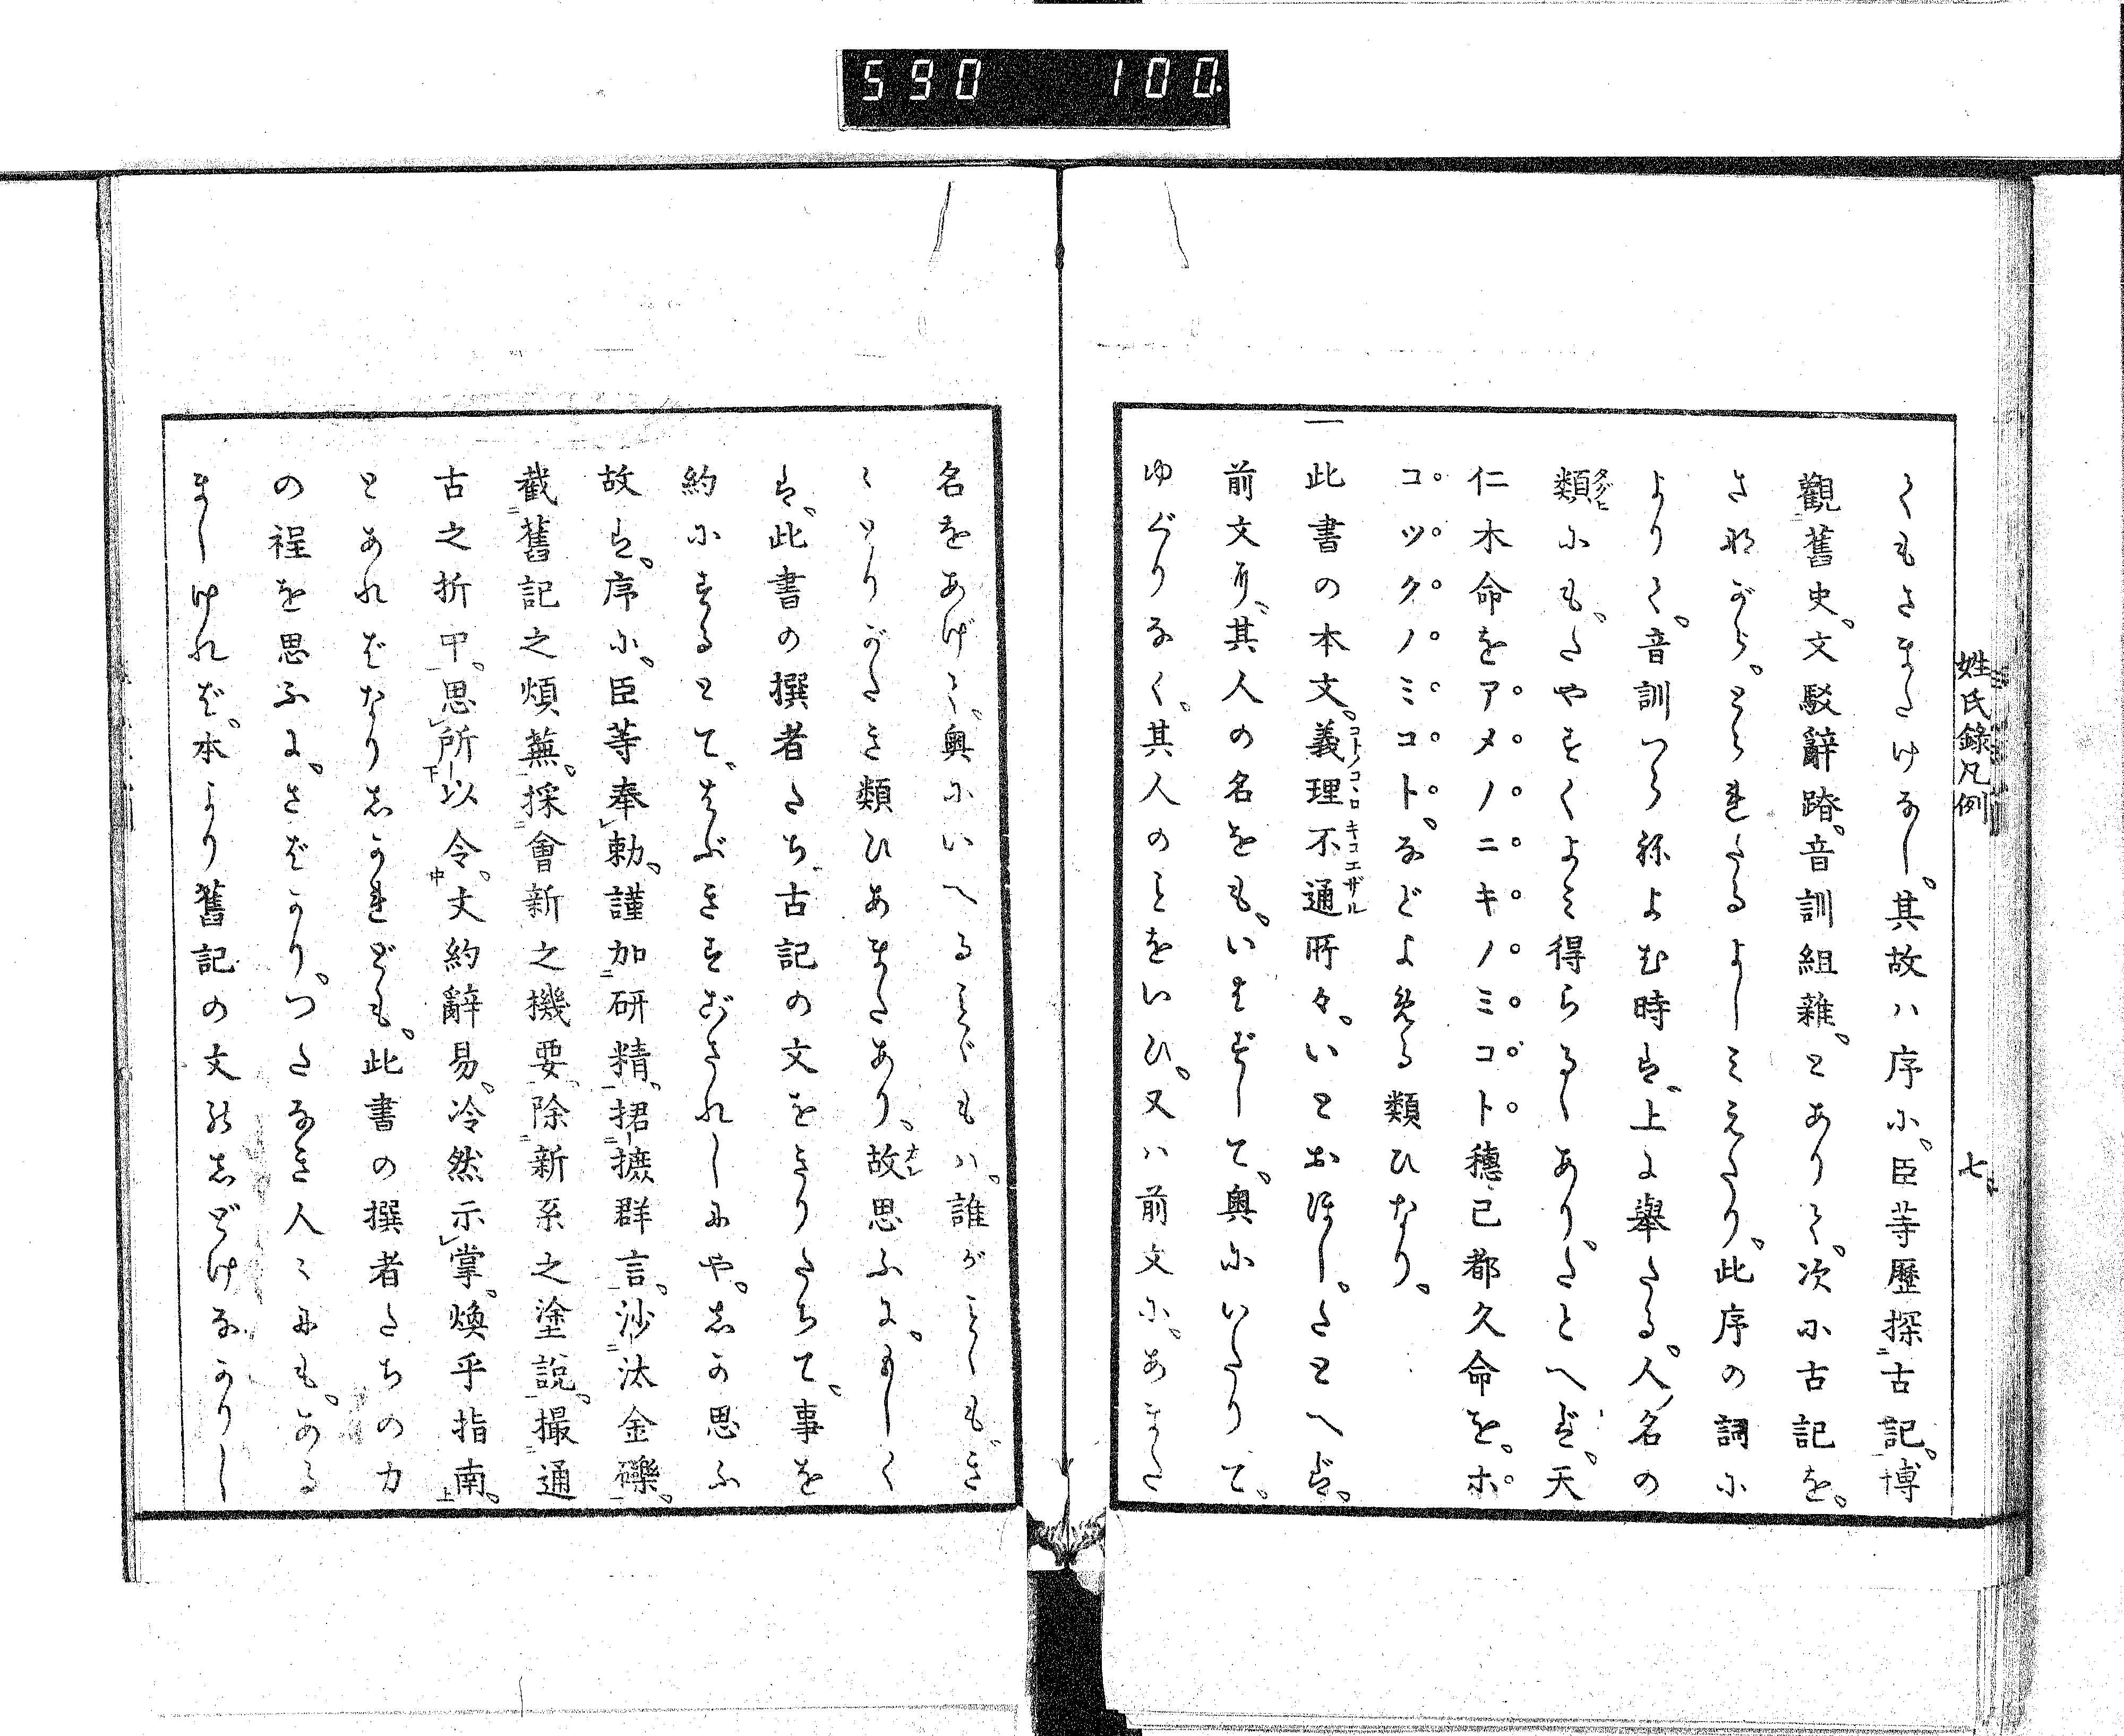 590 100.
姓氏錄凡例 七
くもさまたけなし。其故ハ序に。臣等歷探古記。博
觀舊史。文駁辭踳。音訓組雜。とありて。次に古記を。
さながら。とられたるよしミえたり。此序の詞に
よりて。音訓つらねよむ時は。上に舉たる。人名の
類にも。たやすくよミ得らるゝあり。たとへば。天
仁木命をアメノニキノミコト穗己都久命を。ホ
コツクノミコト。などよめる類ひなり。
一此書の本文。義理不通所々。いとおほし。たとへば。
前文に。其人の名をも。いはずして。奧にいたりて。
ゆくりなく。其人のことをいひ。又ハ前文に。あまた
名をあげて。奧にいへることゞもハ。誰がことゝも。き
ゝとりがたき類ひあまたあり。故思ふに。もしく
は。此書の撰者たち。古記の文をきりたちて。事を
約にするとて。はぶきすぐされしにや。しか思ふ
故は。序に。臣等奉勅。謹加研精。捃摭群言。沙汰金礫。
截舊記之煩蕪。採會新之機要。除新系之塗說。撮通
古之折中。思所以令。丈約辭易。冷然示掌。煥乎指南。
とあればなりしかれども。此書の撰者たちの力
の程を思ふに。さばかり。つたなき人ミにも。ある
ましければ。本より舊記の文のしどけなかりし